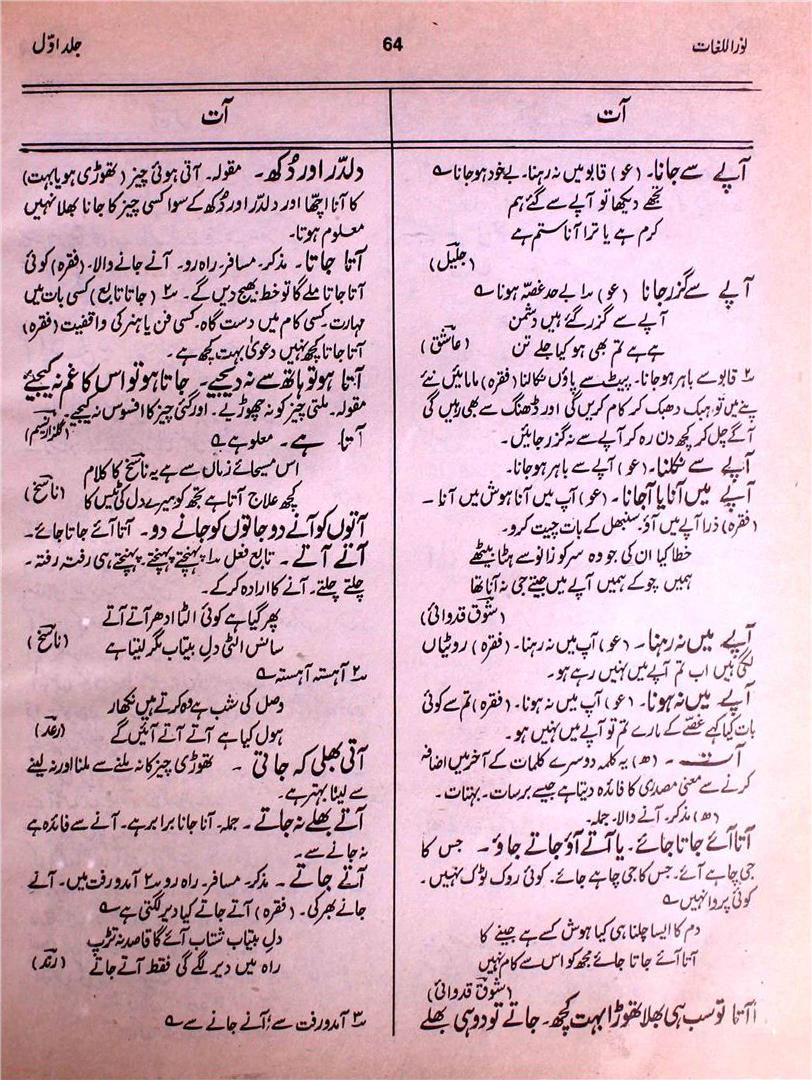 نوراللغات
64
جلد اوّل
آت
آت
آپے سے جانا۔ (عو) قابو میں نہ رہنا۔ بے خود ہو جانا ؎
تجھے دیکھا تو آپے سے گئے ہم
کرم ہے یا ترا آنا ستم ہے
(جلیلؔ)
آپے سے گزر جانا (عو) ۱؎ بے حد غصّہ ہونا ؎
آپے سے گزر گئے ہیں دشمن
ہے ہے تم بھی ہو کیا جلے تن (عاشقؔ)
۲؎ قابو سے باہر ہو جانا۔ پیٹ سے پاؤں نکالنا (فقرہ) مامائیں نئے
بنے میں تو ہبک دھبک کر کام کریں گی اور ڈھنگ سے بھی رہیں گی
آگے چل کر کچھ دن رہ کر آپے سے نہ گزر جائیں۔
آپے سے نکلنا۔ (عو) آپے سے باہر ہو جانا۔
آپے میں آنا یا آجانا۔ (عو) آپ میں آنا ہوش میں آنا۔
(فقرہ) ذرا آپے میں آؤ۔ سنبھل کے بات چیت کرو۔
خطا کیا ان کی جو وہ سر کو زانو سے ہٹا بیٹھے
ہمیں چوکے ہمیں آپے میں جیتے جی نہ آنا تھا
(شوقؔ قدوائی)
آپے میں نہ رہنا۔ (عو) آپ میں نہ رہنا۔ (فقرہ) روٹیاں
لگی ہیں اب تم آپے میں نہیں رہے ہو۔
آپے میں نہ ہونا۔ (عو) آپ میں نہ ہونا۔ (فقرہ) تم سے کوئی
بات کیا کہے غصّے کے مارے تم تو آپے میں نہیں ہو۔
آت۔ (ھ) یہ کلمہ دوسرے کلمات کے آخر میں اضافہ
کرنے سے معنی مصدری کا فائدہ دیتا ہے جیسے برسات۔ بہتات۔
(ھ) مذکر۔ آنے والا۔ جملہ۔
آتا آئے جاتا جائے۔ یا آتے آؤ جاتے جاؤ۔ جس کا
جی چاہے آئے۔ جس کا جی چاہے جائے۔ کوئی روک ٹوک نہیں۔
کوئی پروا نہیں ؎
دم کا ایسا چلنا ہی کیا ہوش کسے ہے جینے کا
آتا آئے جاتا جائے مجھ کو اس سے کام نہیں
(شوقؔ قدوائی)
آتا تو سب ہی بھلا تھوڑا بہت کچھ۔ جاتے تو دو ہی بھلے
دلدّر اور دُکھ۔ مقولہ۔ آتی ہوئی چیز (تھوڑی ہو یا بہت)
کا آنا اچھّا اور دلدّر اور دُکھ کے سوا کسی چیز کا جانا بھلا نہیں
معلوم ہوتا۔
آتا جاتا۔ مذکر۔ مسافر۔ راہ رو۔ آنے جانے والا۔ (فقرہ) کوئی
آتا جاتا ملے گا تو خط بھیج دیں گے۔ ۲؎ (جاتا تابع) کسی بات میں
مہارت۔ کسی کام میں دست گاہ۔ کسی فن یا ہنر کی واقفیت (فقرہ)
آتا جاتا کچھ نہیں دعویٰ بہت کچھ ہے۔
آتا ہو تو ہاتھ سے نہ دیجیے۔ جاتا ہو تو اس کا غم نہ کیجیے
مقولہ۔ ملتی چیز کو نہ چھوڑیے۔ اور گئی چیز کا افسوس نہ کیجیے۔ (گلزار نسیم)
آتا ہے۔ معلوم ہے ؎
اس مسیحائے زماں سے ہے یہ ناسخؔ کا کلام
کچھ علاج آتا ہے تجھ کو میرے دل کی ٹیس کا (ناسخؔ)
آتوں کو آنے دو جاتوں کو جانے دو۔ آتا آئے جاتا جائے۔
آتے آتے۔ تابع فعل ۱؎ پہنچتے پہنچتے۔ پہنچتے ہی رفتہ رفتہ۔
چلتے چلتے۔ آنے کا ارادہ کر کے۔
پھر گیا ہے کوئی الٹا ادھر آتے آتے
سانس الٹی دل بیتاب مگر لیتا ہے (ناسخؔ)
۲؎ آہستہ آہستہ ؎
وصل کی شب ہے وہ کرتے ہیں نکھار
ہول کیا ہے آتے آتے آئیں گے (رعدؔ)
آتی بھلی کہ جاتی۔ تھوڑی چیز کا نہ ملنے سے ملنا اور نہ لینے
سے لینا بہتر ہے۔
آتے بھلے نہ جاتے۔ جملہ۔ آنا جانا برابر ہے۔ آنے سے فائدہ ہے
نہ جانے سے۔
آتے جاتے۔ مذکر۔ مسافر۔ راہ رو ۲؎ آمد و رفت میں۔ آنے
جانے بھر کی۔ (فقرہ) آتے جاتے کیا دیر لگتی ہے ؎
دل بیتاب شتاب آئے گا قاصد نہ تڑپ
راہ میں دیر لگے گی فقط آتے جاتے (رندؔ)
۳؎ آمد و رفت سے؛ آنے جانے سے ؎